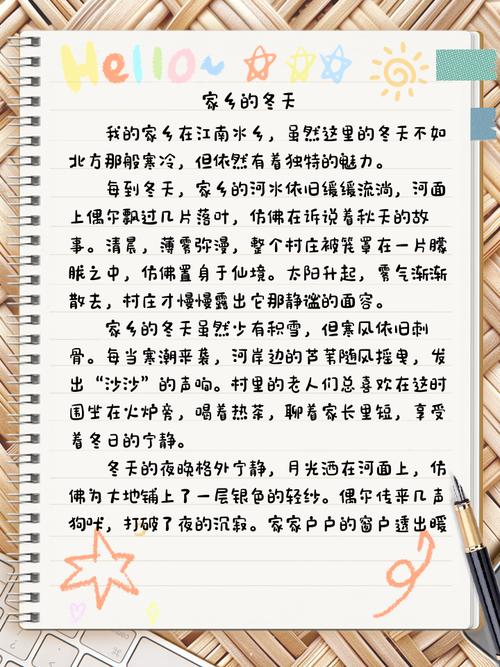 Hello~
家乡的冬天
我的家乡在江南水乡，虽然这里的冬天不如
北方那般寒冷，但依然有着独特的魅力。
每到冬天，家乡的河水依旧缓缓流淌，河面
上偶尔飘过几片落叶，仿佛在诉说着秋天的故
事。清晨，薄雾弥漫，整个村庄被笼罩在一片朦
胧之中，仿佛置身于仙境。太阳升起，雾气渐渐
散去，村庄才慢慢露出它那静谧的面容。
家乡的冬天虽然少有积雪，但寒风依旧刺
骨。每当寒潮来袭，河岸边的芦苇随风摇曳，发
出“沙沙”的声响。村里的老人们总喜欢在这时
围坐在火炉旁，喝着热茶，聊着家长里短，享受
着冬日的宁静。
冬天的夜晚格外宁静，月光洒在河面上，仿
佛为大地铺上了一层银色的轻纱。偶尔传来几声
狗吠，打破了夜的沉寂。家家户户的窗户透出暖